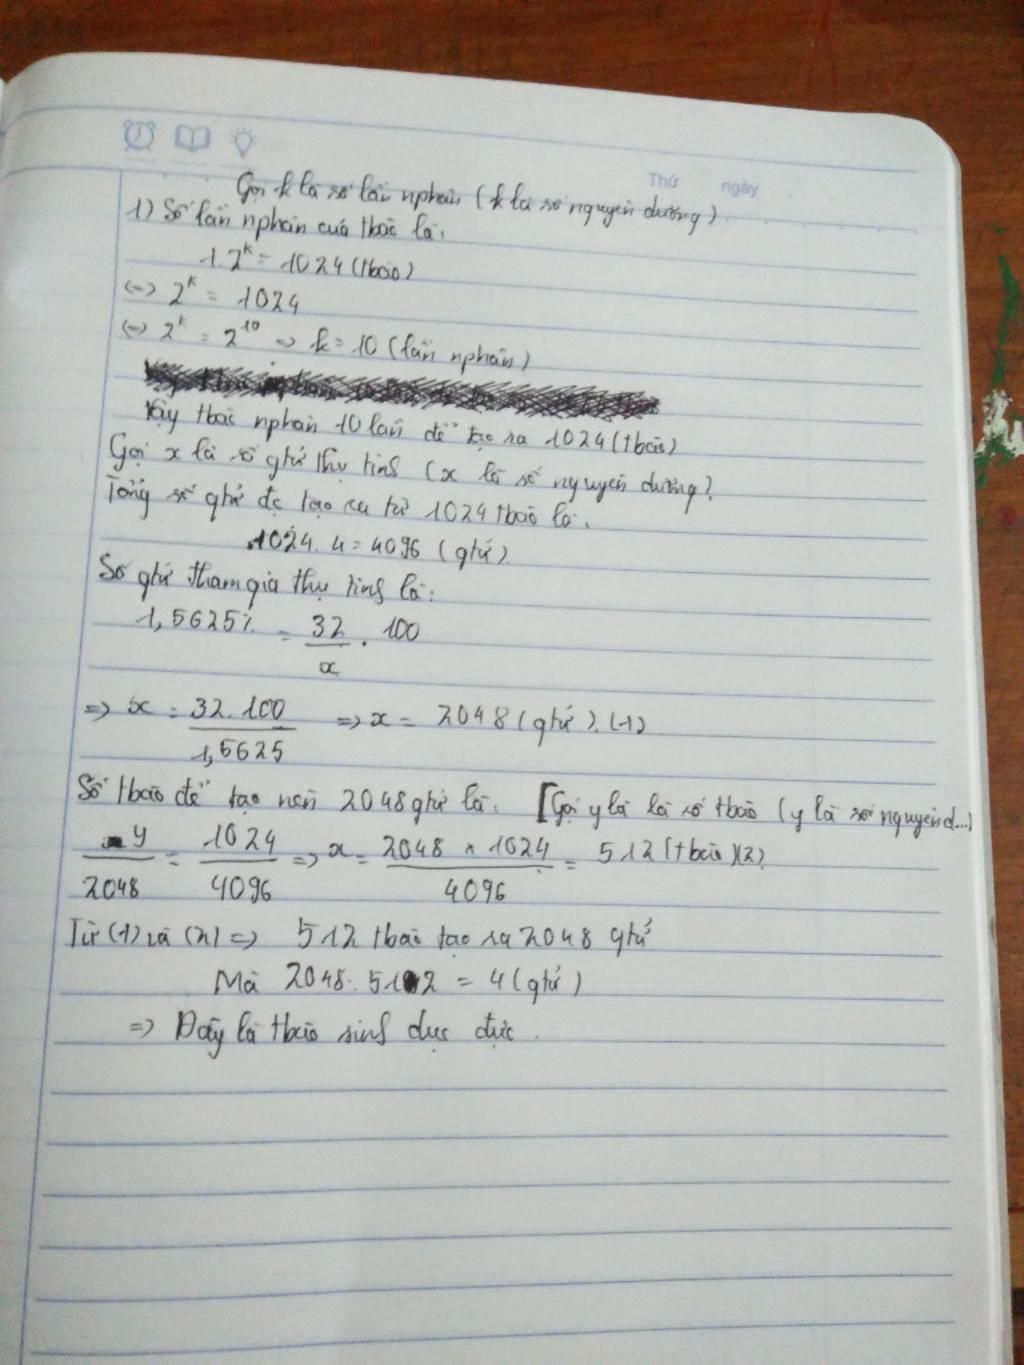 Thứ ngày
Gọi k là số lần nphân (k là số nguyên dương).
1) Số lần nphân của tbào là:
1.2^k = 1024 (tbào)
<=> 2^k = 1024
<=> 2^k = 2^10 => k = 10 (lần nphân)
Vậy tbào nphân 10 lần để tạo ra 1024 (tbào)
Gọi x là số gtử thụ tinh (x là số nguyên dương).
Tổng số gtử đc tạo ra từ 1024 tbào là.
1024. 4 = 4096 (gtử).
Số gtử tham gia thụ tinh là:
1,5625% = 32/x . 100
=> x = 32.100/1,5625 => x = 2048 (gtử). (1)
Số tbào để tạo nên 2048 gtử là: [Gọi y là là số tbào (y là số nguyên d...)
y/2048 = 1024/4096 => x = 2048 x 1024/4096 = 512 (tbào)(2).
Từ (1) và (2) => 512 tbào tạo ra 2048 gtử
Mà 2048 : 512 = 4 (gtử)
=> Đây là tbào sinh dục đực.